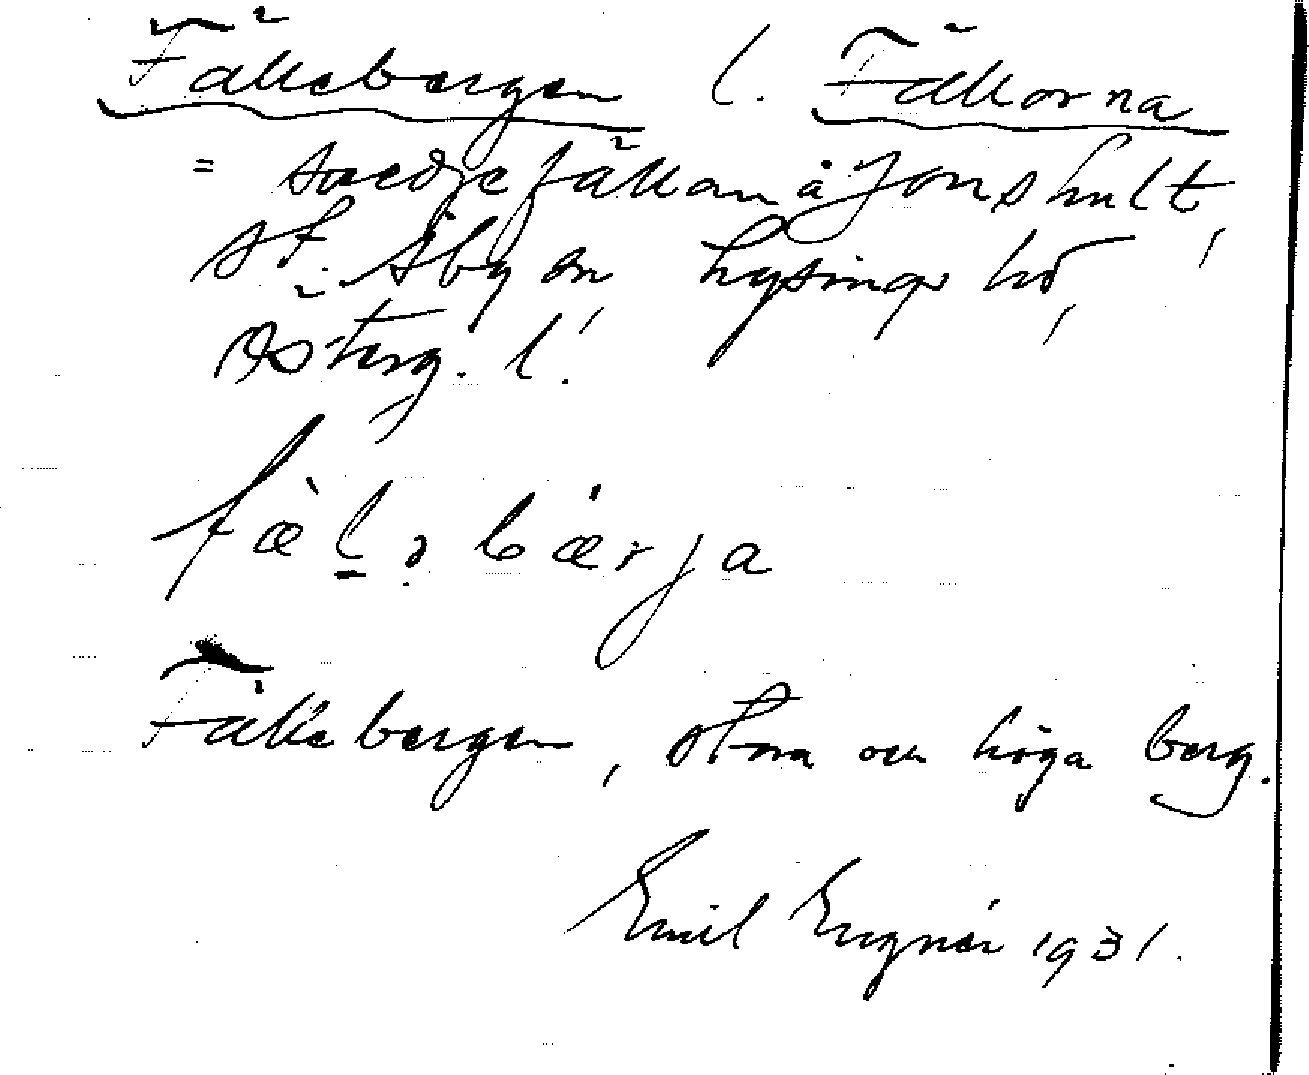 Fällebergen l. Fällorna
= svedjefällan å Jonshult,
st. Åby sn Lysings hd,
Österg. l.
fæ̀l̠ə bærja
Fällebergen, stora och höga berg.
Emil Engnér 1931.